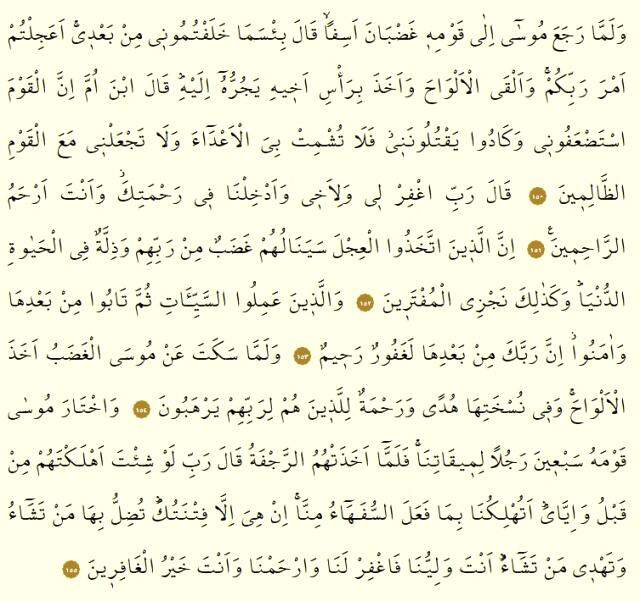 وَلَمَّا رَجَعَ مُوسٰٓى اِلٰى قَوْمِه۪ غَضْبَانَ اَسِفًاۙ قَالَ بِئْسَمَا خَلَفْتُمُون۪ي مِنْ بَعْد۪يۚ اَعَجِلْتُمْ
اَمْرَ رَبِّكُمْۚ وَاَلْقَى الْاَلْوَاحَ وَاَخَذَ بِرَأْسِ اَخ۪يهِ يَجُرُّهُٓ اِلَيْهِۜ قَالَ ابْنَ اُمَّ اِنَّ الْقَوْمَ
اسْتَضْعَفُون۪ي وَكَادُوا يَقْتُلُونَن۪يۘ فَلَا تُشْمِتْ بِيَ الْاَعْدَٓاءَ وَلَا تَجْعَلْن۪ي مَعَ الْقَوْمِ
الظَّالِم۪ينَ ١٥٠ قَالَ رَبِّ اغْفِرْ ل۪ي وَلِاَخ۪ي وَاَدْخِلْنَا ف۪ي رَحْمَتِكَۘ وَاَنْتَ اَرْحَمُ
الرَّاحِم۪ينَ۟ ١٥١ اِنَّ الَّذ۪ينَ اتَّخَذُوا الْعِجْلَ سَيَنَالُهُمْ غَضَبٌ مِنْ رَبِّهِمْ وَذِلَّةٌ فِي الْحَيٰوةِ
الدُّنْيَاۜ وَكَذٰلِكَ نَجْزِي الْمُفْتَر۪ينَ ١٥٢ وَالَّذ۪ينَ عَمِلُوا السَّيِّـَٔاتِ ثُمَّ تَابُوا مِنْ بَعْدِهَا
وَاٰمَنُواۘ اِنَّ رَبَّكَ مِنْ بَعْدِهَا لَغَفُورٌ رَح۪يمٌ ١٥٣ وَلَمَّا سَكَتَ عَنْ مُوسَى الْغَضَبُ اَخَذَ
الْاَلْوَاحَۚ وَف۪ي نُسْخَتِهَا هُدًى وَرَحْمَةٌ لِلَّذ۪ينَ هُمْ لِرَبِّهِمْ يَرْهَبُونَ ١٥٤ وَاخْتَارَ مُوسٰى
قَوْمَهُ سَبْع۪ينَ رَجُلًا لِم۪يقَاتِنَاۚ فَلَمَّٓا اَخَذَتْهُمُ الرَّجْفَةُ قَالَ رَبِّ لَوْ شِئْتَ اَهْلَكْتَهُمْ مِنْ
قَبْلُ وَاِيَّايَۜ اَتُهْلِكُنَا بِمَا فَعَلَ السُّفَهَٓاءُ مِنَّاۚ اِنْ هِيَ اِلَّا فِتْنَتُكَۜ تُضِلُّ بِهَا مَنْ تَشَٓاءُ
وَتَهْد۪ي مَنْ تَشَٓاءُۜ اَنْتَ وَلِيُّنَا فَاغْفِرْ لَنَا وَارْحَمْنَا وَاَنْتَ خَيْرُ الْغَافِر۪ينَ ١٥٥